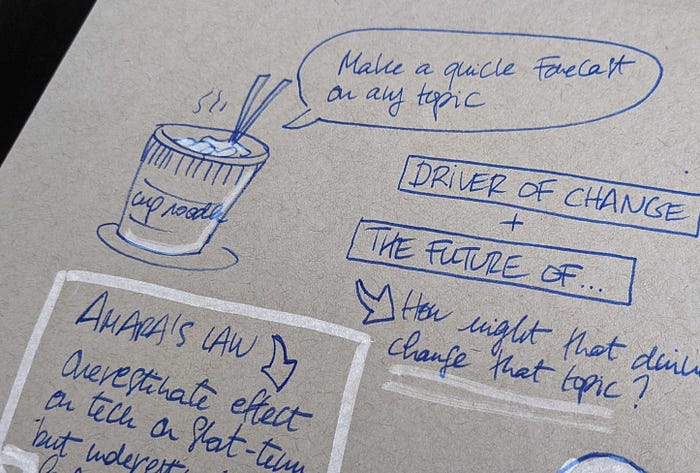 Make a quick Forecast
on any topic
cup noodle
DRIVER OF CHANGE
+
THE FUTURE OF...
How might that
change that topic?
AMARA'S LAW
Overestimate effect
on tech on short-term
but